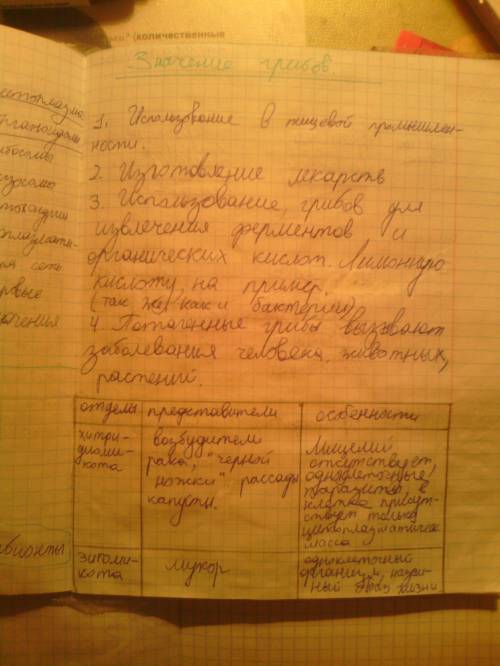 (количественные
Значение грибов.
1. Использование в пищевой промышлен-
ности.
2. Изготовление лекарств
3. Использование, грибов для
извлечения ферментов и
органических кислот. Лимонную
кислоту, на пример.
(так же, как и бактерии),
4. Патогенные грибы вызывают
заболевания человека, животных,
растений.
отделы представители особенности
хитри-
диоми-
кота
возбудители
рака, "черной
ножки" рассады
капусты.
Мицелий
отсутствует
одноклеточные,
паразиты, в
клетке присут-
ствует только
цитоплазматическ.
масса
зигоми-
кота
мукор
одноклеточный
организм,
ный образ жизни